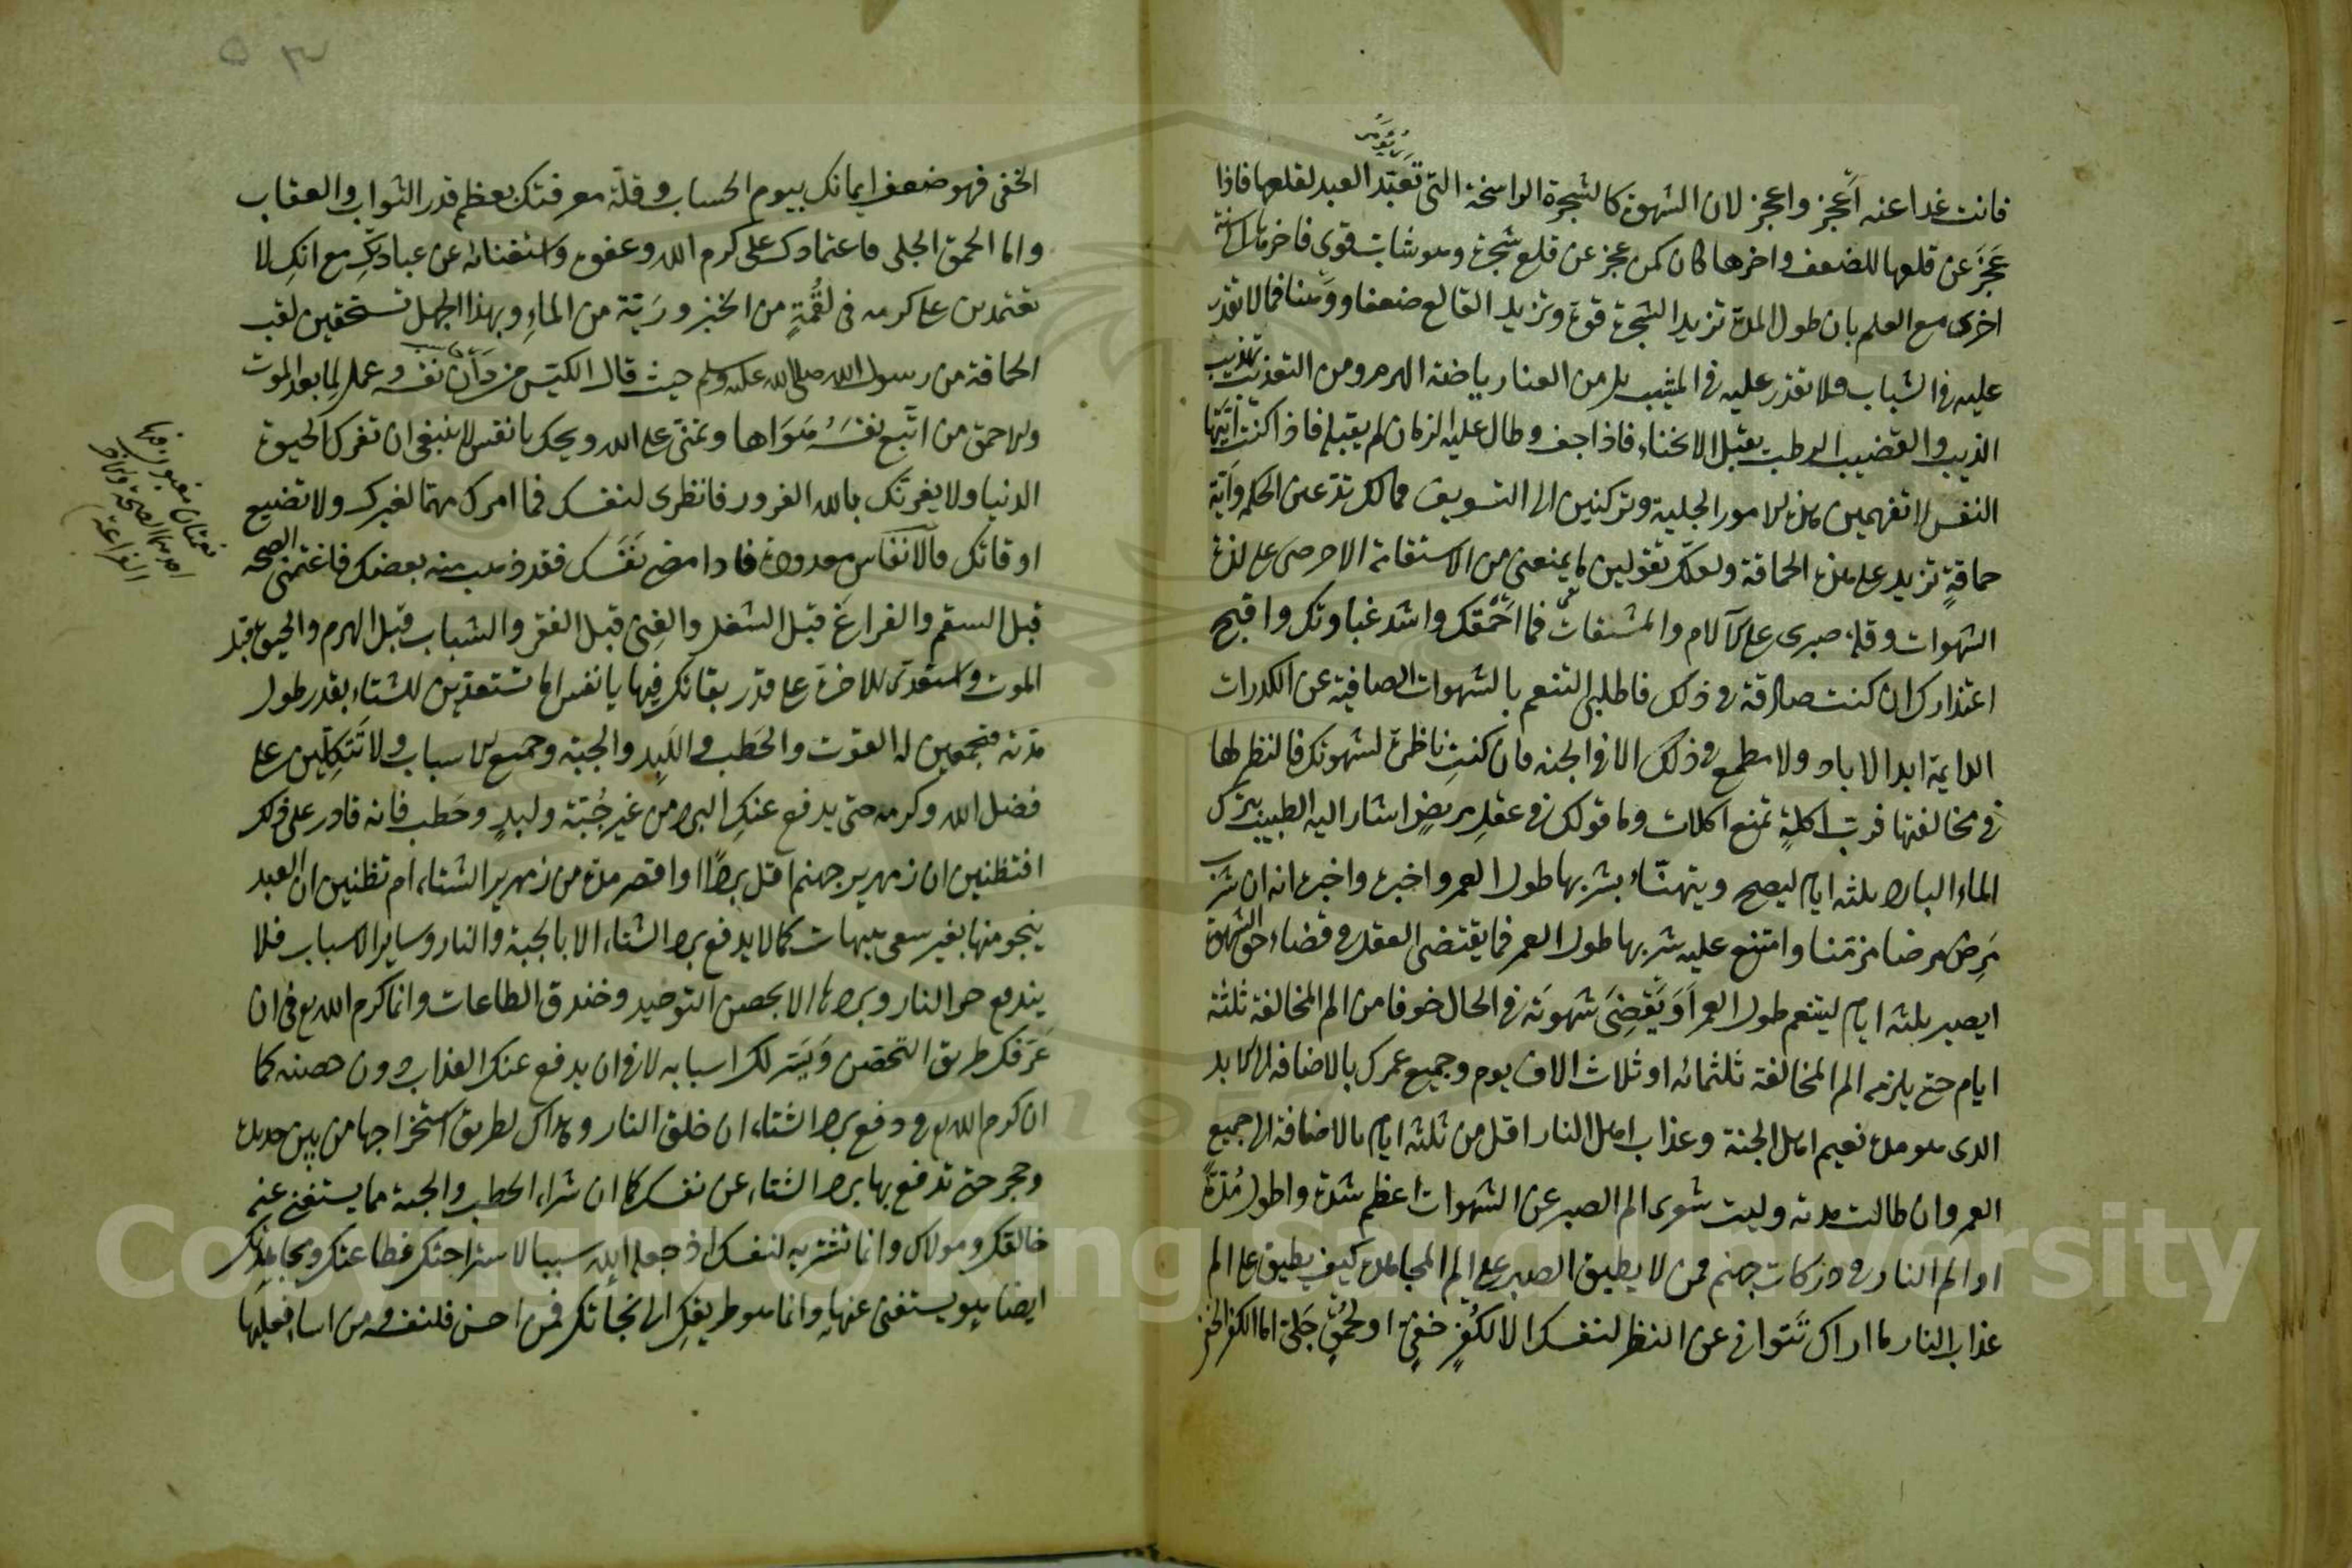 فانت غدا عنه أعجز واعجز لان الشهوة كالشجرة الراسخة التى تعبد العبد لقلعها فاذا
عجز عن قلعها للضعف واخرها كان كمن عجز عن قلع شجرة وهو شاب قوى فاخرها الى سنة
اخرى مع العلم بان طول المدة تزيد الشجرة قوة وتزيد القالع ضعفا ووهنا فما لا تقدر
عليه فى الشباب فلا تقدر عليه فى المشيب بل من العنا رياضة الهرم ومن التعذيب تهذيب
الذيب والقضيب الرطب يقبل الانحناء فاذا جف وطال عليه الزمان لم يقبله فاذا كنت ايتها
النفس لا تفهمين هذه الامور الجلية وتركنين الى التسويف فمالك تدعين الحكمة واية
حماقة تزيد على هذه الحماقة ولعلك تقولين ما يمنعنى من الاستقامة الا حرصى على لذة
الشهوات وقلة صبرى على الآلام والمشقات فما احمقك واشد غباوتك واقبح
اعتذارك ان كنت صادقة فى ذلك فاطلبى التنعم بالشهوات الصافية عن الكدرات
الدايمة ابد الاباد ولا مطمع فى ذلك الا فى الجنة فان كنت ناظرة لشهوتك فالنظر لها
فى مخالفتها فرب اكلة تمنع اكلات وما قولك فى عقل مريض اشار اليه الطبيب بترك
الماء البارد ثلثة ايام ليصح ويتهنّاء بشربها طول العمر واخبره واخبره انه ان شرب
مرض مرضا مزمنا وامتنع عليه شربها طول العمر فما يقتضى العقل فى قضاء حق الشهوة
ايصبر ثلثة ايام ليتنعم طول العمر أو يقضى شهوته فى الحال خوفا من الم المخالفة ثلثة
ايام حتى يلزمه الم المخالفة ثلثمائه او ثلاث الاف يوم وجميع عمرك بالاضافة الى الابد
الذى هو مدة نعيم اهل الجنة وعذاب اهل النار اقل من ثلثة ايام بالاضافة الى جميع
العمر وان طالت مدته وليت شعرى الم الصبر عن الشهوات اعظم شدة واطول مدة
او الم النار فى دركات جهنم فمن لا يطيق الصبر على الم المجاهدة كيف يطيق على الم
عذاب النار ما اراك تتوانى عن النظر لنفسك الا لكفر خفى او لحمق جلى اما الكفر الخفى
الخفى فهو ضعف ايمانك بيوم الحساب وقلة معرفتك بعظم قدر الثواب والعقاب
واما الحمق الجلى فاعتمادك على كرم الله وعفوه واستغنائه عن عبادتك مع انك لا
تعتمدين على كرمه فى لقمة من الخبز وشربة من الماء وبهذا الجهل تستحقين لقب
الحماقة من رسول الله صلى الله عليه وسلم حيث قال الكيس من دان نفسه وعمل لما بعد الموت
والاحمق من اتبع نفسه هواها وتمنى على الله ويحك يا نفس لا ينبغى ان تغرك الحيوة
الدنيا ولا يغرنك بالله الغرور فانظرى لنفسك فما امرك مهما لغيرك ولا تضيع
اوقاتك فالانفاس معدودة فاذا مضى نفسك فقد ذهب منه بعضك فاغتنمى الصحة
قبل السقم والفراغ قبل الشغل والغنى قبل الفقر والشباب قبل الهرم والحيوة قبل
الموت واستعدى للاخرة على قدر بقائك فيها يا نفس اما تستعدين للشتاء بقدر طول
مدته فتجمعين له القوت والحطب واللبد والجبة وجميع الاسباب ولا تتكلين على
فضل الله وكرمه حتى يدفع عنك البرد من غير جبة ولبد وحطب فانه قادر على ذلك
افتظنين ان زمهرير جهنم اقل بردا او اقصر مدة من زمهرير الشتاء ام تظنين ان العبد
ينجو منها بغير سعى هيهات كما لا يدفع برد الشتاء الا بالجبة والنار وساير الاسباب فلا
يندفع حر النار وبردها الا بحصن التوحيد وخندق الطاعات وانما كرم الله تع فى ان
عرفك طريق التحصن ويسر لك اسبابه لا فى ان يدفع عنك العذاب دون حصنه كما
ان كرم الله تع فى دفع برد الشتاء ان خلق النار وهداك لطريق استخراجها من بين حديد
وحجر حتى تدفع بها برد الشتاء عن نفسك كما ان شراء الحطب والجبة مما يستغنى عنه
خالقك ومولاك وانما تشتريه لنفسك اذ جعله الله سببا لاستراحتك فطاعتك ومجاهدتك
ايضا هو يستغنى عنها وانما هو طريقك الى نجاتك فمن احسن فلنفسه ومن اساء فعليها
نعمتان مغبون فيها
الفراغة